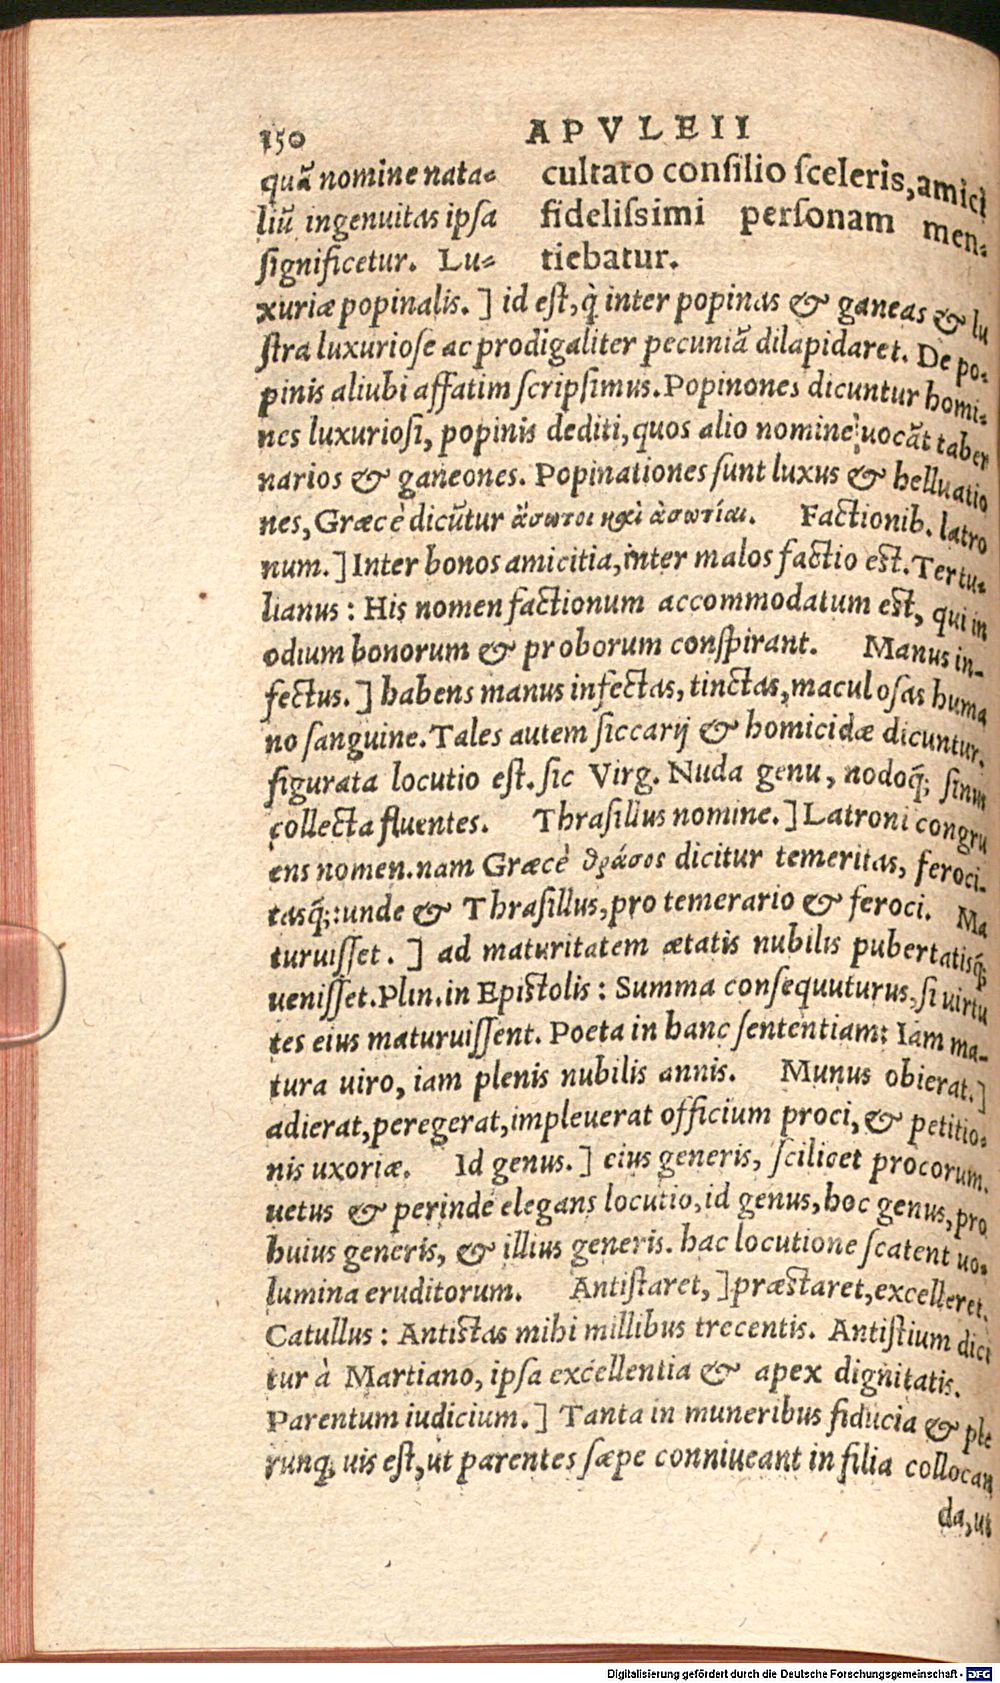 150
APVLEII
quã nomine nata-
liũ ingenuitas ipsa
significetur. Lu-
cultato consilio sceleris, amici
fidelissimi personam men-
tiebatur.
xuriæ popinalis. ] id est, q̀ inter popinas & ganeas & lu
stra luxuriose ac prodigaliter pecuniã dilapidaret. De po-
pinis aliubi affatim scripsimus. Popinones dicuntur homi-
nes luxuriosi, popinis dediti, quos alio nomine uocãt taber
narios & ganeones. Popinationes sunt luxus & helluatio
nes, Græcè dicũtur ἄσωτοι καὶ ἀσωτίαι. Factionib. latro
num. ] Inter bonos amicitia, inter malos factio est. Tertu-
lianus : His nomen factionum accommodatum est, qui in
odium bonorum & proborum conspirant. Manus in-
fectus. ] habens manus infectas, tinctas, maculosas huma
no sanguine. Tales autem siccarij & homicidæ dicuntur.
figurata locutio est. sic Virg. Nuda genu, nodoq́; sinus
collecta fluentes. Thrasilius nomine. ] Latroni congru
ens nomen. nam Græcè θράσος dicitur temeritas, feroci-
tasq́;: unde & Thrasillus, pro temerario & feroci. Ma
turuisset. ] ad maturitatem ætatis nubilis pubertatisq́;
uenisset. Plin. in Epistolis : Summa consequuturus, si uirtu
tes eius maturuissent. Poeta in hanc sententiam: Iam ma-
tura uiro, iam plenis nubilis annis. Munus obierat. ]
adierat, peregerat, impleuerat officium proci, & petitio-
nis uxoriæ. Id genus. ] eius generis, scilicet procorum.
uetus & perinde elegans locutio, id genus, hoc genus, pro
huius generis, & illius generis. hac locutione scatent uo-
lumina eruditorum. Antistaret, ] præstaret, excelleret.
Catullus : Antistas mihi millibus trecentis. Antistium dici
tur à Martiano, ipsa excellentia & apex dignitatis.
Parentum iudicium. ] Tanta in muneribus fiducia & ple
runq; uis est, ut parentes sæpe conniueant in filia collocan
da, ut
Digitalisierung gefördert durch die Deutsche Forschungsgemeinschaft - DFG